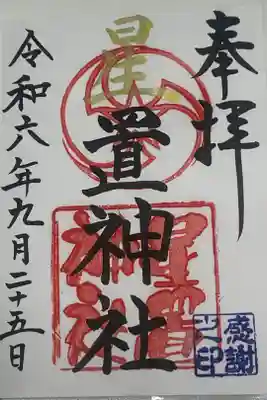 奉拝
星置神社
令和六年九月二十五日
星置神社
感謝